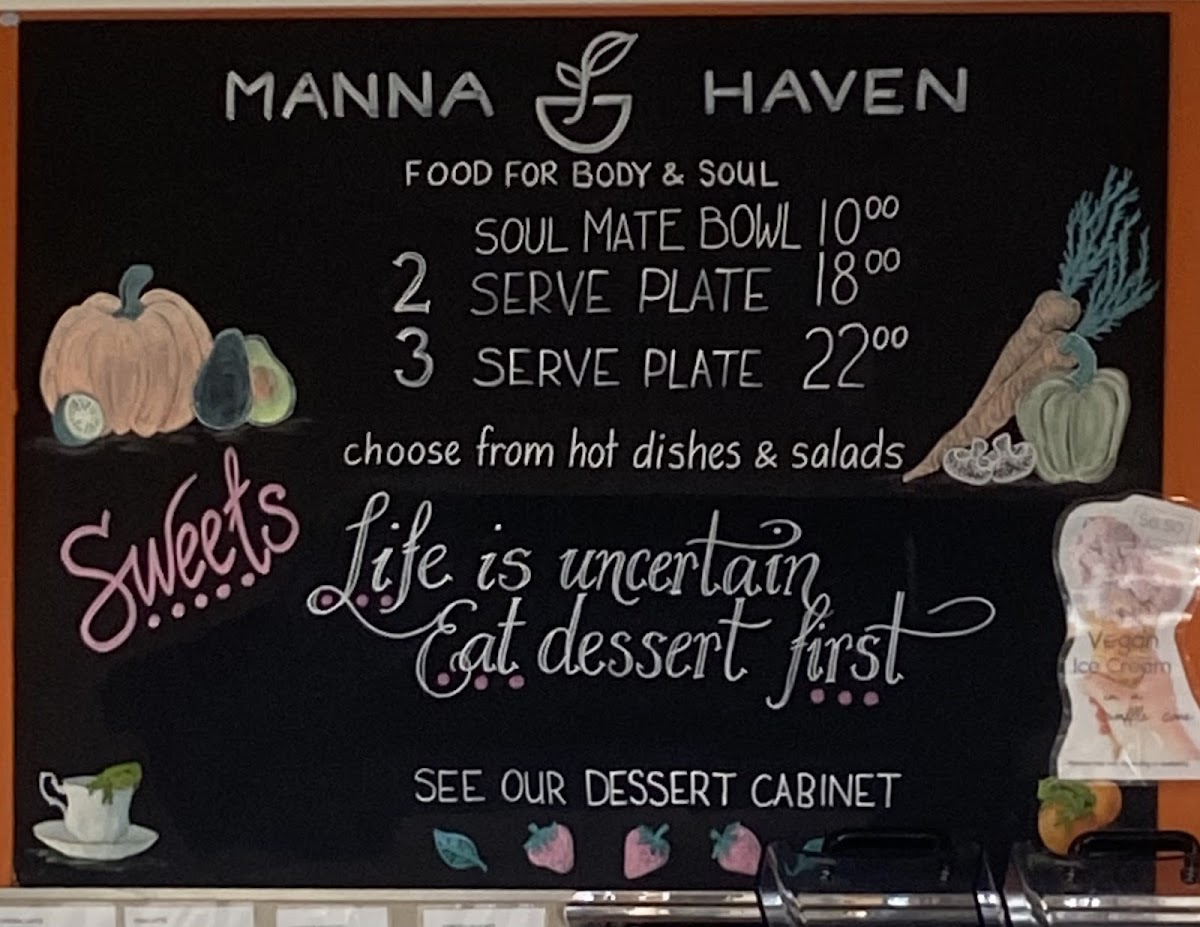 MANNA HAVEN
FOOD FOR BODY & SOUL
SOUL MATE BOWL 10⁰⁰
2 SERVE PLATE 18⁰⁰
3 SERVE PLATE 22⁰⁰
choose from hot dishes & salads
Sweets
Life is uncertain
Eat dessert first
SEE OUR DESSERT CABINET
$6.50
Vegan
Ice Cream
in a
waffle cone